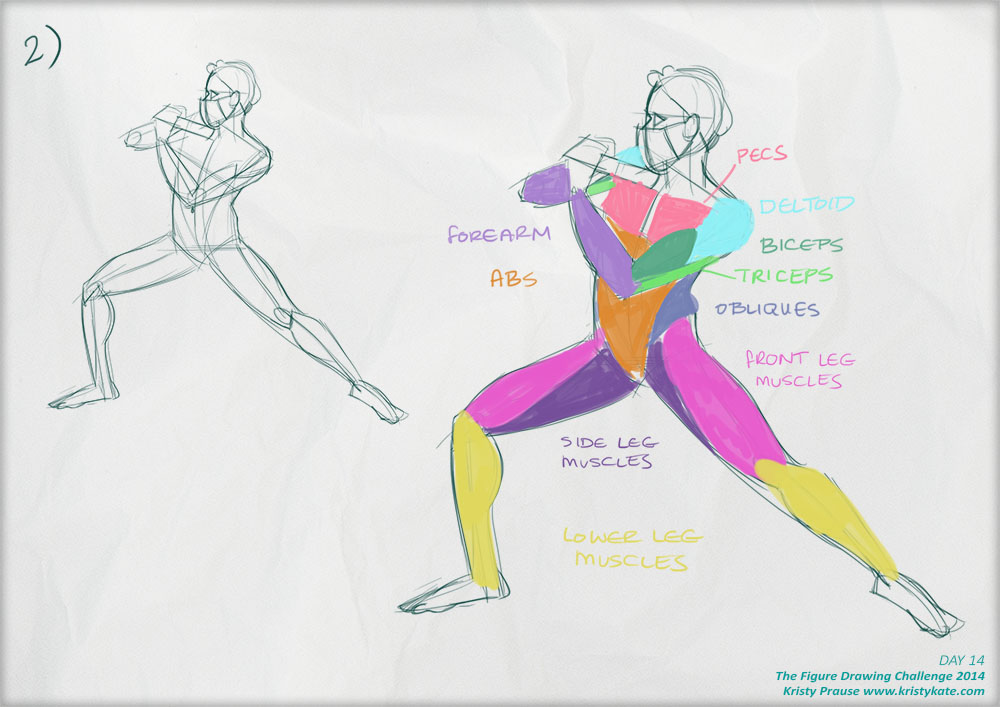 2)
PECS
DELTOID
FOREARM
BICEPS
ABS
TRICEPS
OBLIQUES
FRONT LEG
MUSCLES
SIDE LEG
MUSCLES
LOWER LEG
MUSCLES
DAY 14
The Figure Drawing Challenge 2014
Kristy Prause www.kristykate.com